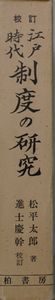 校訂
江戸時代制度の研究
松平太郎著
進士慶幹校訂
柏書房